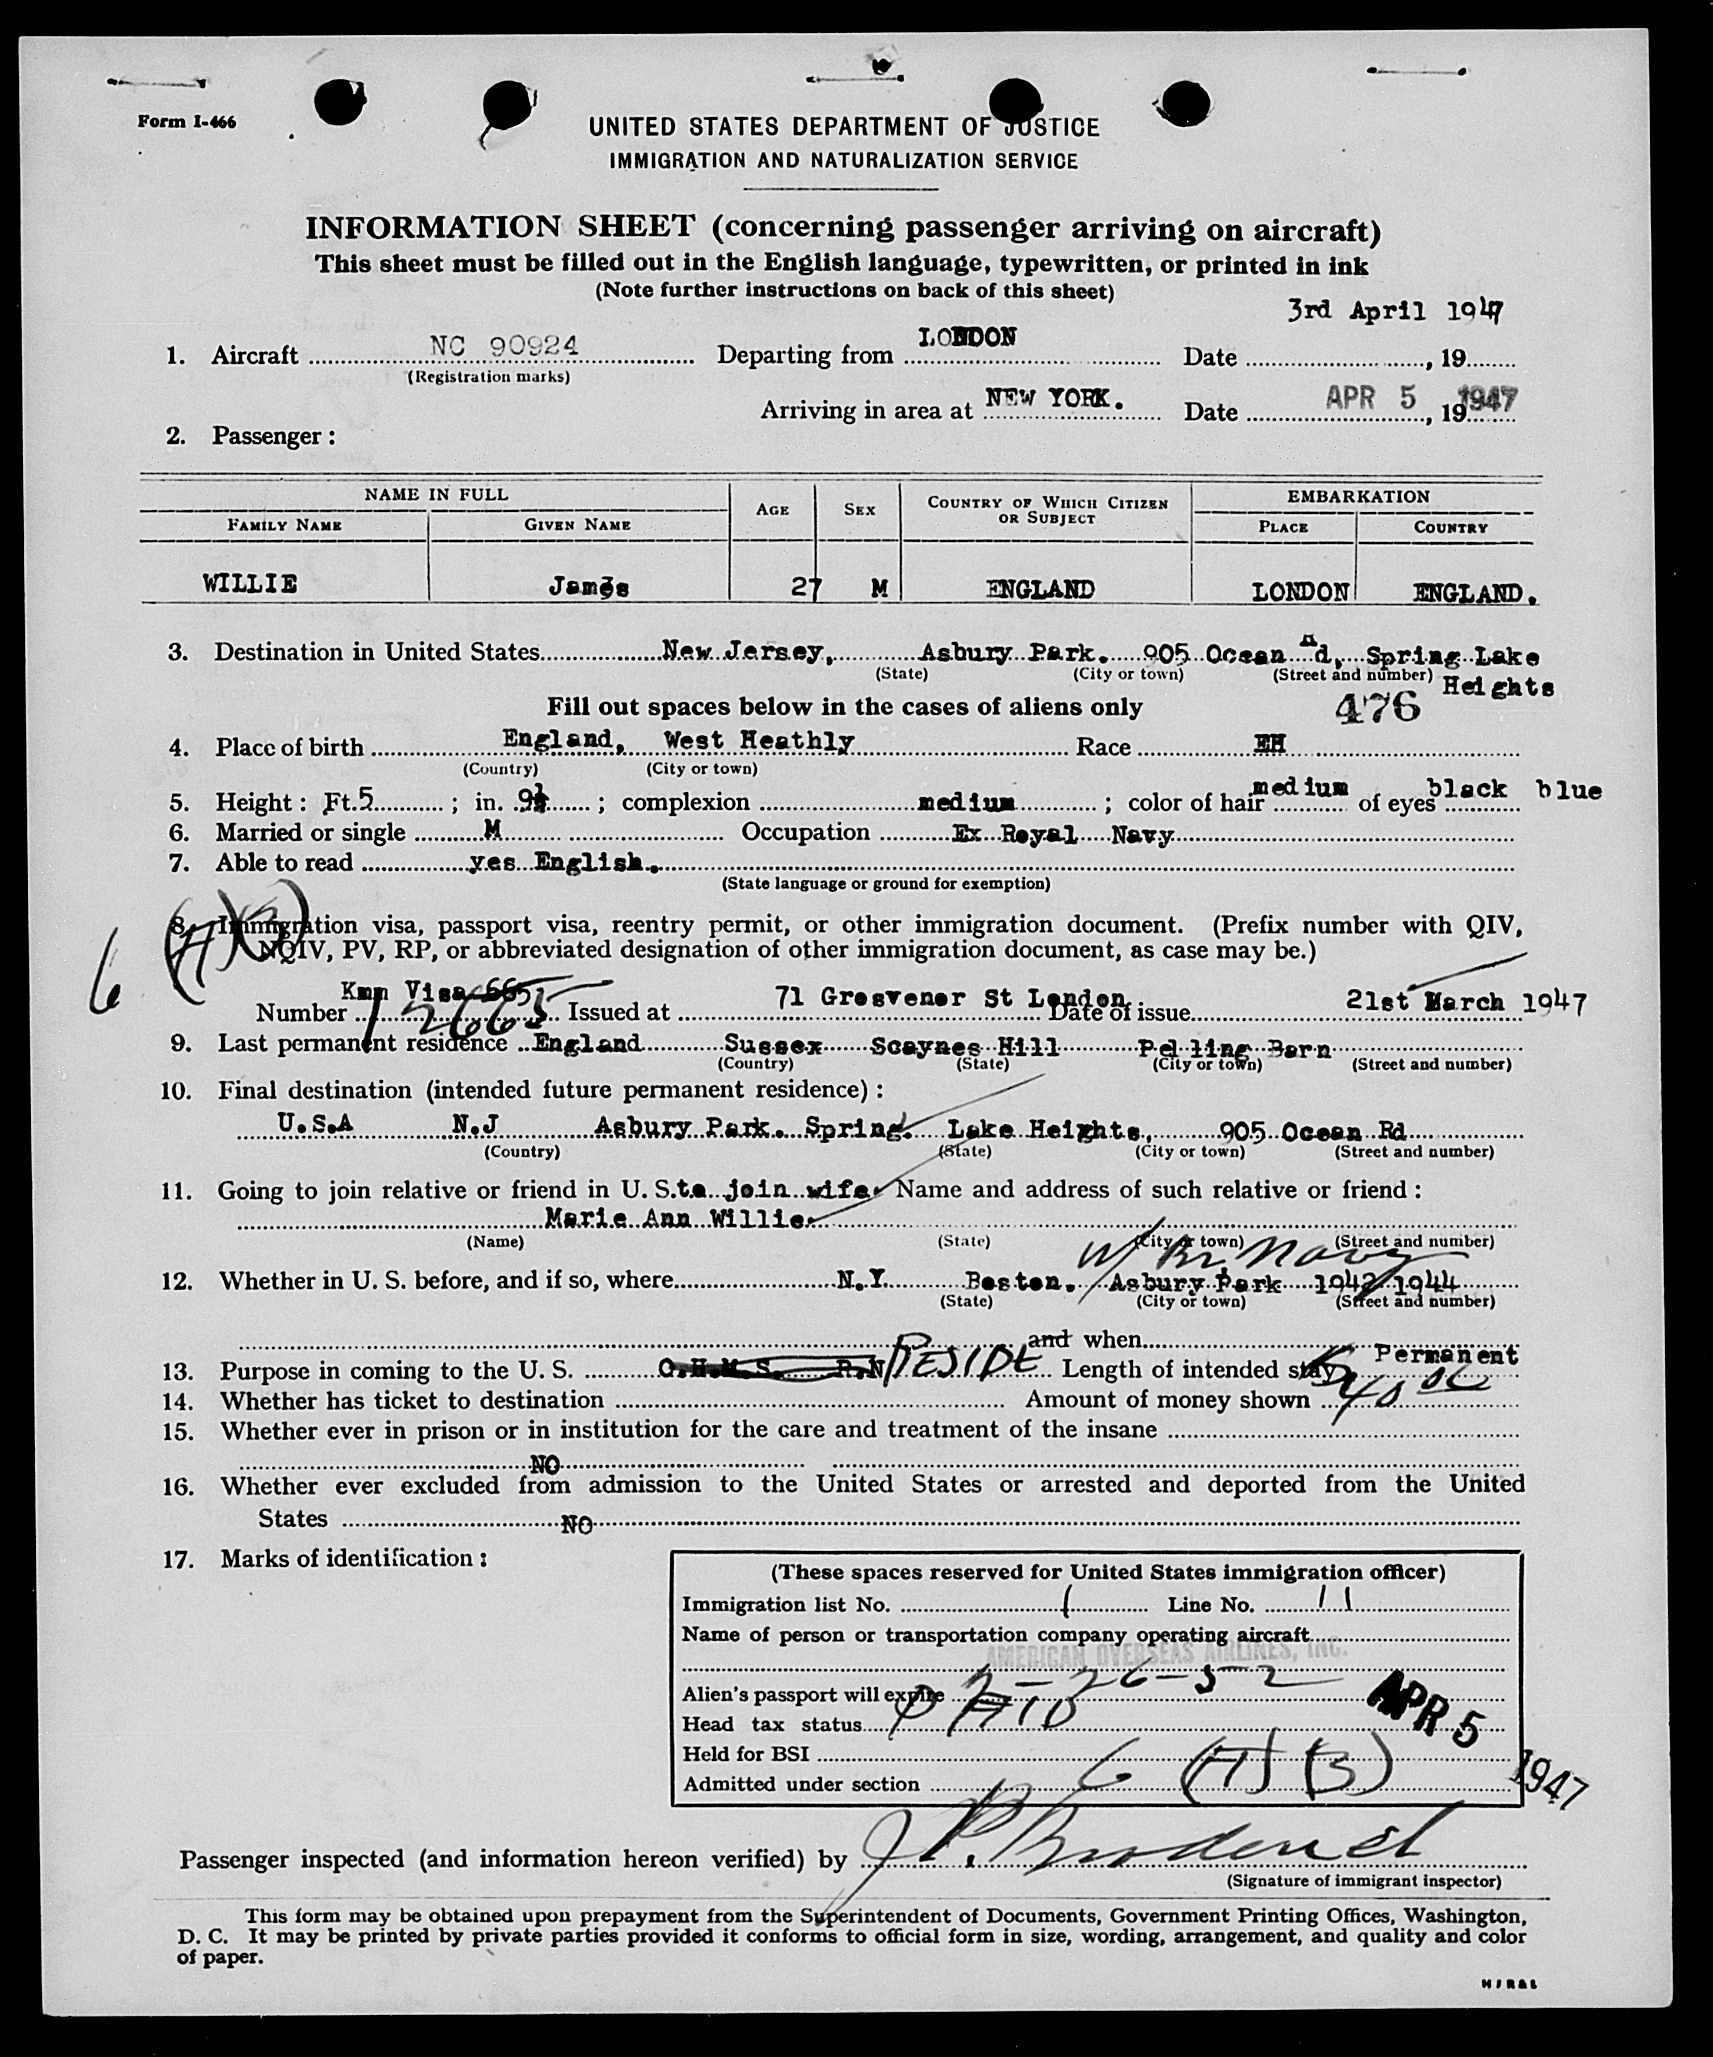 Form I-466
UNITED STATES DEPARTMENT OF JUSTICE
IMMIGRATION AND NATURALIZATION SERVICE
INFORMATION SHEET (concerning passenger arriving on aircraft)
This sheet must be filled out in the English language, typewritten, or printed in ink
(Note further instructions on back of this sheet)
3rd April 1947
1. Aircraft NC 90924 Departing from LONDON Date , 19
(Registration marks)
Arriving in area at NEW YORK. Date APR 5 , 19 1947
2. Passenger :
NAME IN FULL AGE SEX COUNTRY OF WHICH CITIZEN OR SUBJECT EMBARKATION
FAMILY NAME GIVEN NAME PLACE COUNTRY
WILLIE James 27 M ENGLAND LONDON ENGLAND.
3. Destination in United States New Jersey, Asbury Park. 905 Ocean d, Spring Lake
(State) (City or town) (Street and number) Heights
Fill out spaces below in the cases of aliens only 476
4. Place of birth England, West Heathly Race EH
(Country) (City or town)
5. Height : Ft. 5 ; in. 9½ ; complexion medium ; color of hair medium of eyes black blue
6. Married or single M Occupation Ex Royal Navy
7. Able to read yes English.
(State language or ground for exemption)
6 (A)(3)
8. Immigration visa, passport visa, reentry permit, or other immigration document. (Prefix number with QIV,
NQIV, PV, RP, or abbreviated designation of other immigration document, as case may be.)
Number Visa 12665 Issued at 71 Grosvenor St London, Date of issue 21st March 1947
9. Last permanent residence England Sussex Scaynes Hill Pelling Barn
(Country) (State) (City or town) (Street and number)
10. Final destination (intended future permanent residence) :
U.S.A N.J Asbury Park. Spring. Lake Heights, 905 Ocean Rd
(Country) (State) (City or town) (Street and number)
11. Going to join relative or friend in U. S. to join wife. Name and address of such relative or friend :
Marie Ann Willie.
(Name) (State) (City or town) (Street and number)
w/ Br. Navy
12. Whether in U. S. before, and if so, where N.Y. Boston. Asbury Park 1942 1944
(State) (City or town) (Street and number)
and when
13. Purpose in coming to the U. S. O.H.M.S. R.N RESIDE Length of intended stay Permanent
14. Whether has ticket to destination Amount of money shown $40.00
15. Whether ever in prison or in institution for the care and treatment of the insane
NO
16. Whether ever excluded from admission to the United States or arrested and deported from the United
States NO
17. Marks of identification :
(These spaces reserved for United States immigration officer)
Immigration list No. 1 Line No. 11
Name of person or transportation company operating aircraft
AMERICAN OVERSEAS AIRLINES, INC.
Alien's passport will expire 2-26-52
Head tax status PAID
APR 5 1947
Held for BSI
Admitted under section 6 (A) (3)
Passenger inspected (and information hereon verified) by
(Signature of immigrant inspector)
This form may be obtained upon prepayment from the Superintendent of Documents, Government Printing Offices, Washington,
D. C. It may be printed by private parties provided it conforms to official form in size, wording, arrangement, and quality and color
of paper.